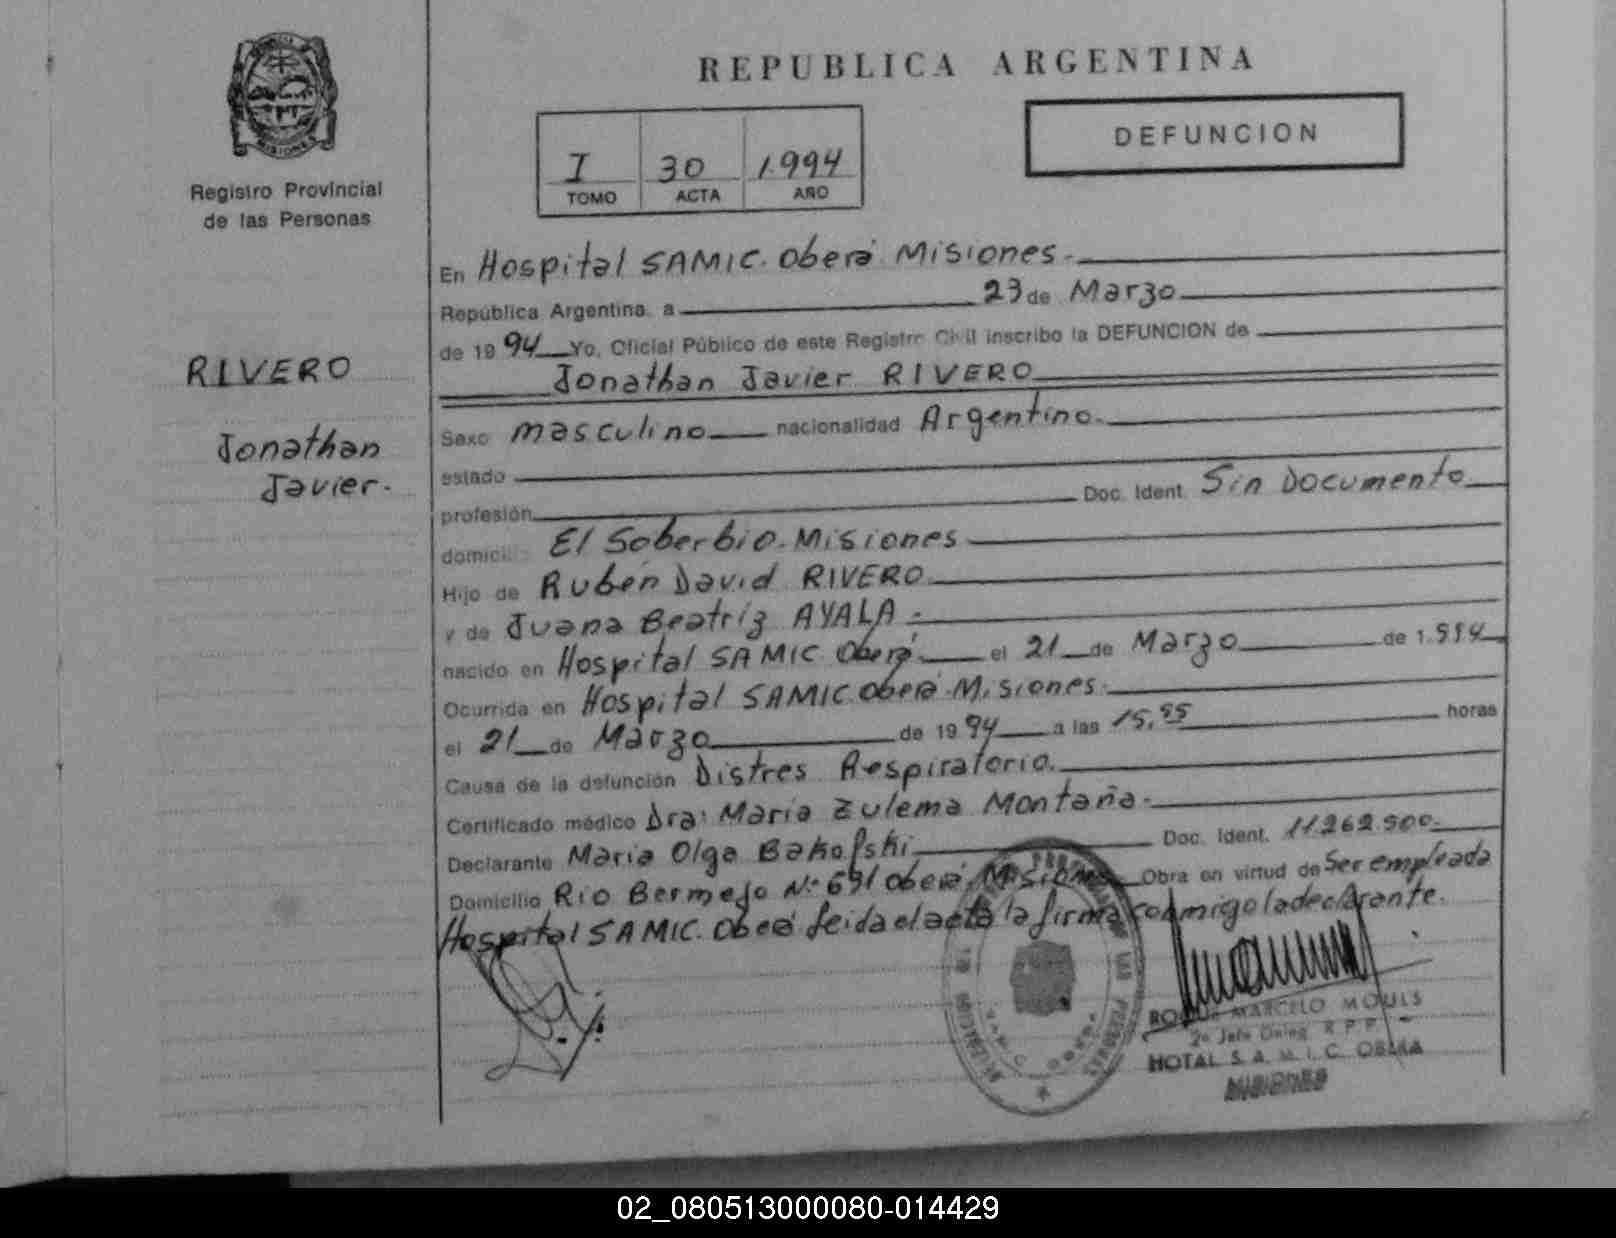 REPUBLICA ARGENTINA
DEFUNCION
MISIONES
Registro Provincial
de las Personas
I 30 1.994
TOMO ACTA AÑO
RIVERO
Jonathan
Javier.-
En Hospital SAMIC. Oberá Misiones.-
República Argentina, a 23 de Marzo
de 19 94 Yo, Oficial Público de este Registro Civil inscribo la DEFUNCION de
Jonathan Javier RIVERO
Sexo masculino nacionalidad Argentino.-
estado
profesión Doc. Ident. Sin Documento
domicilio El Soberbio-Misiones
Hijo de Rubén David RIVERO
y de Juana Beatríz AYALA.-
nacido en Hospital SAMIC Oberá el 21 de Marzo de 1.994
Ocurrida en Hospital SAMIC. Oberá-Misiones-
el 21 de Marzo de 19 94 a las 15, horas
Causa de la defunción Distres Respiratorio.
Certificado médico Dra: María Zulema Montaña-
Declarante María Olga Bakofski Doc. Ident. 11.262.500-
Domicilio Río Bermejo Nº 691 Oberá, Misiones Obra en virtud de Ser empleada
Hospital SAMIC. Oberá leida el acta la firma conmigo la declarante.
ROQUE MARCELO MOULS
2º Jefe R.P.P.
HOTAL S.A.M.I.C. OBERA
MISIONES
02_080513000080-014429